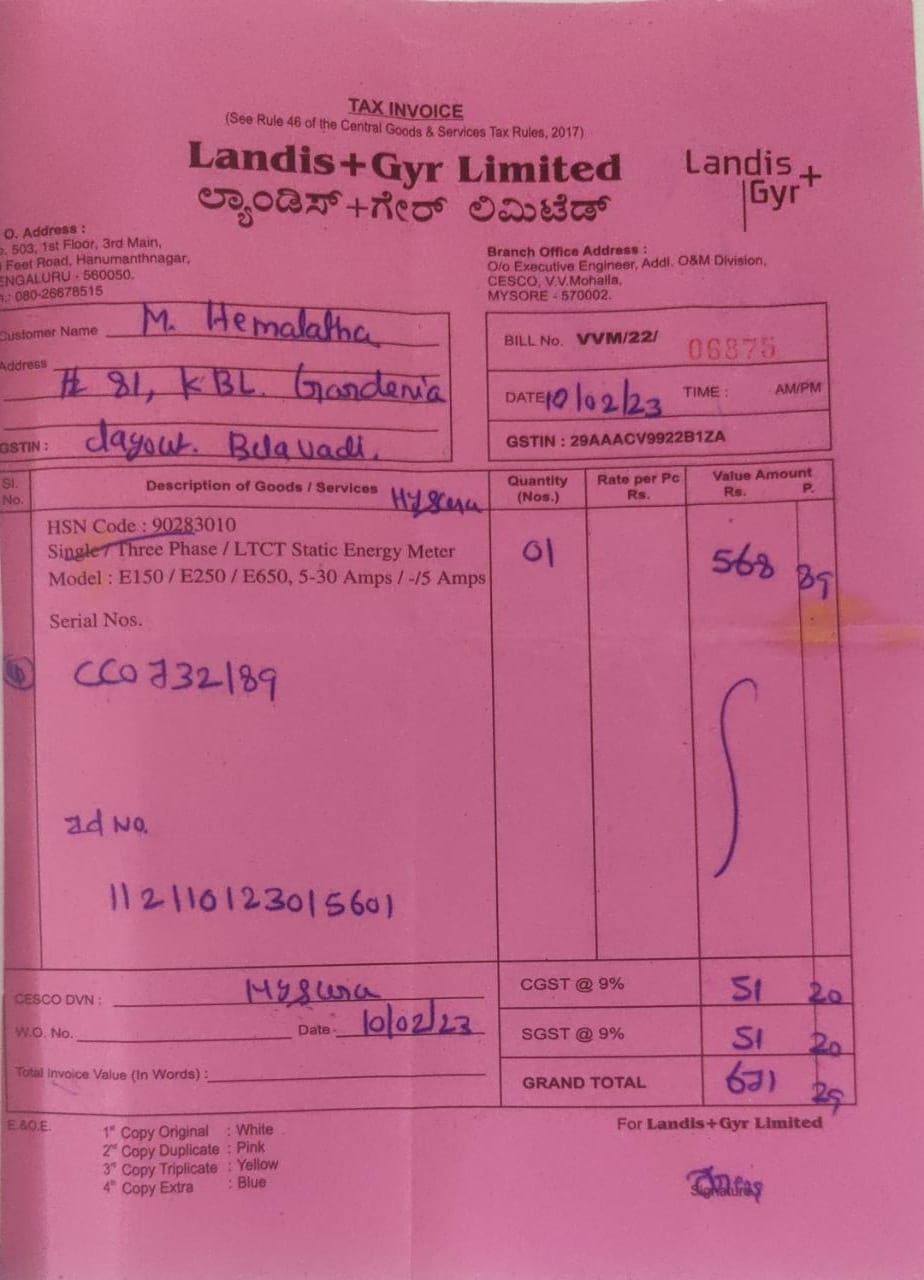 TAX INVOICE
(See Rule 46 of the Central Goods & Services Tax Rules, 2017)
Landis+Gyr Limited
ಲ್ಯಾಂಡಿಸ್+ಗೇರ್ ಲಿಮಿಟೆಡ್
Landis+
Gyr
O. Address :
503, 1st Floor, 3rd Main,
Feet Road, Hanumanthnagar,
ENGALURU - 560050.
080-26678515
Branch Office Address :
O/o Executive Engineer, Addl. O&M Division,
CESCO, V.V.Mohalla,
MYSORE - 570002.
Customer Name M. Hemalatha
Address # 81, KBL Gardenia
GSTIN : Layout. Belavadi,
BILL No. VVM/22/ 06875
DATE 10/02/23 TIME : AM/PM
GSTIN : 29AAACV9922B1ZA
Sl. No. Description of Goods / Services Quantity (Nos.) Rate per Pc Rs. Value Amount Rs. P.
Mysuru
HSN Code : 90283010
Single / Three Phase / LTCT Static Energy Meter 01 568 89
Model : E150 / E250 / E650, 5-30 Amps / -/5 Amps
Serial Nos.
CC0732189
Id No.
112110123015601
CESCO DVN : Mysuru
W.O. No. Date 10/02/23
Total Invoice Value (In Words) :
CGST @ 9% 51 20
SGST @ 9% 51 20
GRAND TOTAL 671 29
E.&O.E.
1st Copy Original : White
2nd Copy Duplicate : Pink
3rd Copy Triplicate : Yellow
4th Copy Extra : Blue
For Landis+Gyr Limited
Signature